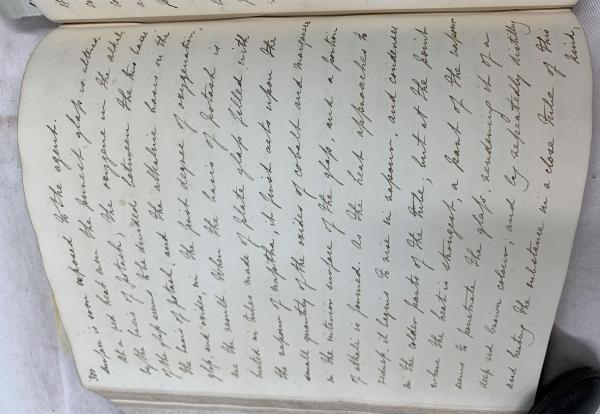 30
surface is soon exposed to the agent.
At a red heat even the purest glass is altered
by the basis of potash; the oxygene in the alkali
of the glass seems to be divided between the two bases
the basis of potash, and the alkaline basis in the
glass, and oxides, in the first degree of oxygenation,
are the result. When the basis of potash is
heated in tubes made of plate glass filled with
the vapour of naptha, it first acts upon the
small quantity of the oxides of cobalt and manganese
in the interior surface of the glass, and a portion
of alkali is formed. As the heat approaches to
redness, it begins to rise in vapour, and condenses
in the colder parts of the tube; but at the point
where the heat is strongest, a part of the vapour
seems to penetrate the glass, rendering it of a
deep red brown colour; and by repeatedly distilling
and heating the substance in a close tube of this
kind,